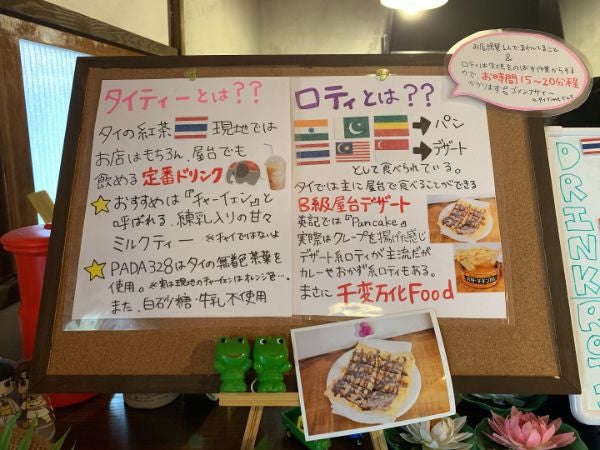 タイティーとは??
タイの紅茶 現地では
お店はもちろん、屋台でも
飲める定番ドリンク
おすすめは『チャーイェン』と
呼ばれる、練乳入りの甘々
ミルクティー ※チャイではないよ
PADA328はタイの無着色茶葉を
使用。※実は現地のチャーイェンはオレンジ色…
また、白砂糖・牛乳不使用
ロティとは??
パン
デザート
として食べられている。
タイでは主に屋台で食べることができる
B級屋台デザート
英記では『Pancake』
実際はクレープを揚げた感じ
デザート系ロティが主流だが
カレーやおかず系ロティもある。
まさに千変万化Food
&
ロティは生地をのばす作業からする
ので、お時間15〜20分程
かかります
DRINK